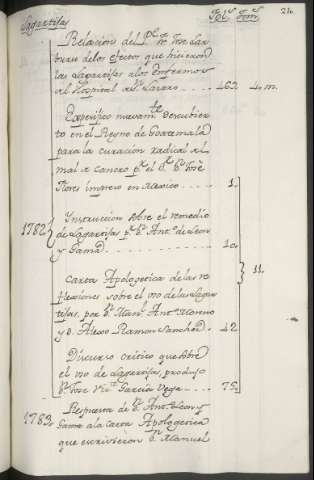 Lagartijas
Fol.s Tom.s
26
Relacion del P.e Fr. Jose Lar
buru de los efectos que hicieron
las Lagartijas a los Enfermos
del Hospital de S.n Lazaro . . . . 463. 4. m.
Especifico nuevam.te descubier
to en el Reyno de Goatemala
para la curacion radical del
mal de cancro p.r el D.r D.n José
Flores impreso en Mexico . . . . 1.
1782
Ynstruccion sobre el remedio
de Lagartijas p.r D.n Ant.o de Leon
y Gama . . . . 10.
11.
Carta Apologetica de las re
flexiones sobre el uso de las Lagar
tijas, por D.n Man.l Ant.o Moreno
y D. Alexo Ramon Sanchez . 42.
Discurso critico que sobre
el uso de Lagartijas, produjo
D.n Jose Vic.te Garcia Vega . . . . 75.
1783.
Respuesta de D.n Ant.o Leon y
Gama a la carta Apologetica
que escribieron D.n Manuel